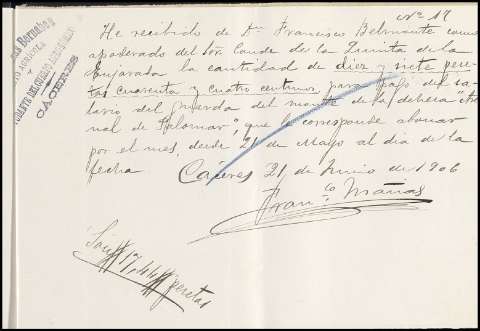 Nº 17
He recibido de Dn. Francisco Belmonte como
apoderado del Sr. Conde de la Quinta de la
Enjarada la cantidad de diez y siete pese-
tas cuarenta y cuatro centimos para pago del sa-
lario del guarda del monte de la dehesa
de Palomar", que le corresponde abonar
por el mes, desde 21 de Mayo al dia de la
fecha.
Cáceres 21, de Junio de 1906
Fran.co Mañas
Son 17,44 pesetas
CACERES